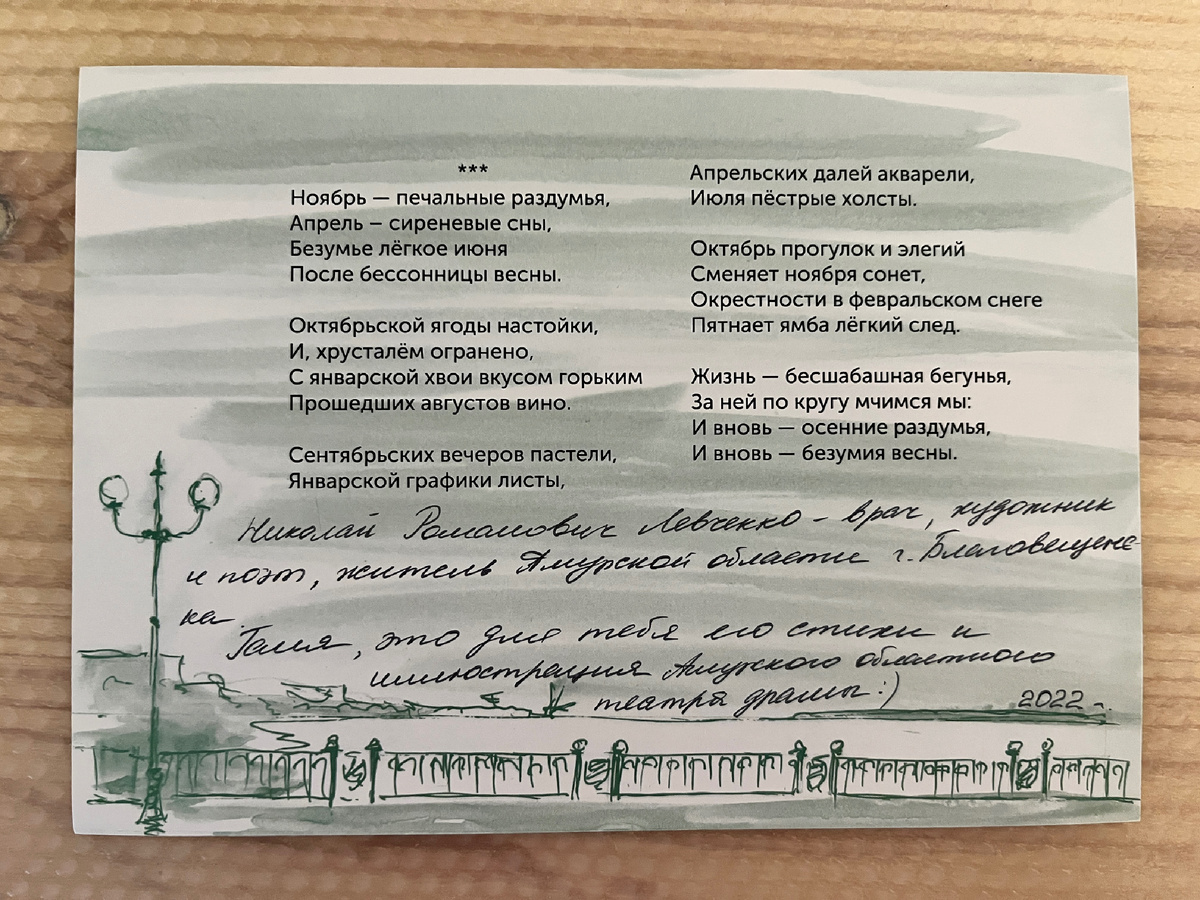 ***
Ноябрь — печальные раздумья,
Апрель — сиреневые сны,
Безумье лёгкое июня
После бессонницы весны.
Октябрьской ягоды настойки,
И, хрусталём огранено,
С январской хвои вкусом горьким
Прошедших августов вино.
Сентябрьских вечеров пастели,
Январской графики листы,
Апрельских далей акварели,
Июля пёстрые холсты.
Октябрь прогулок и элегий
Сменяет ноября сонет,
Окрестности в февральском снеге
Пятнает ямба лёгкий след.
Жизнь — бесшабашная бегунья,
За ней по кругу мчимся мы:
И вновь — осенние раздумья,
И вновь — безумия весны.
Николай Романович Левченко - врач, художник
и поэт, житель Амурской области г. Благовещенс-
ка
Галя, это для тебя его стихи и
иллюстрация Амурского областного
театра драмы :)
2022 г.